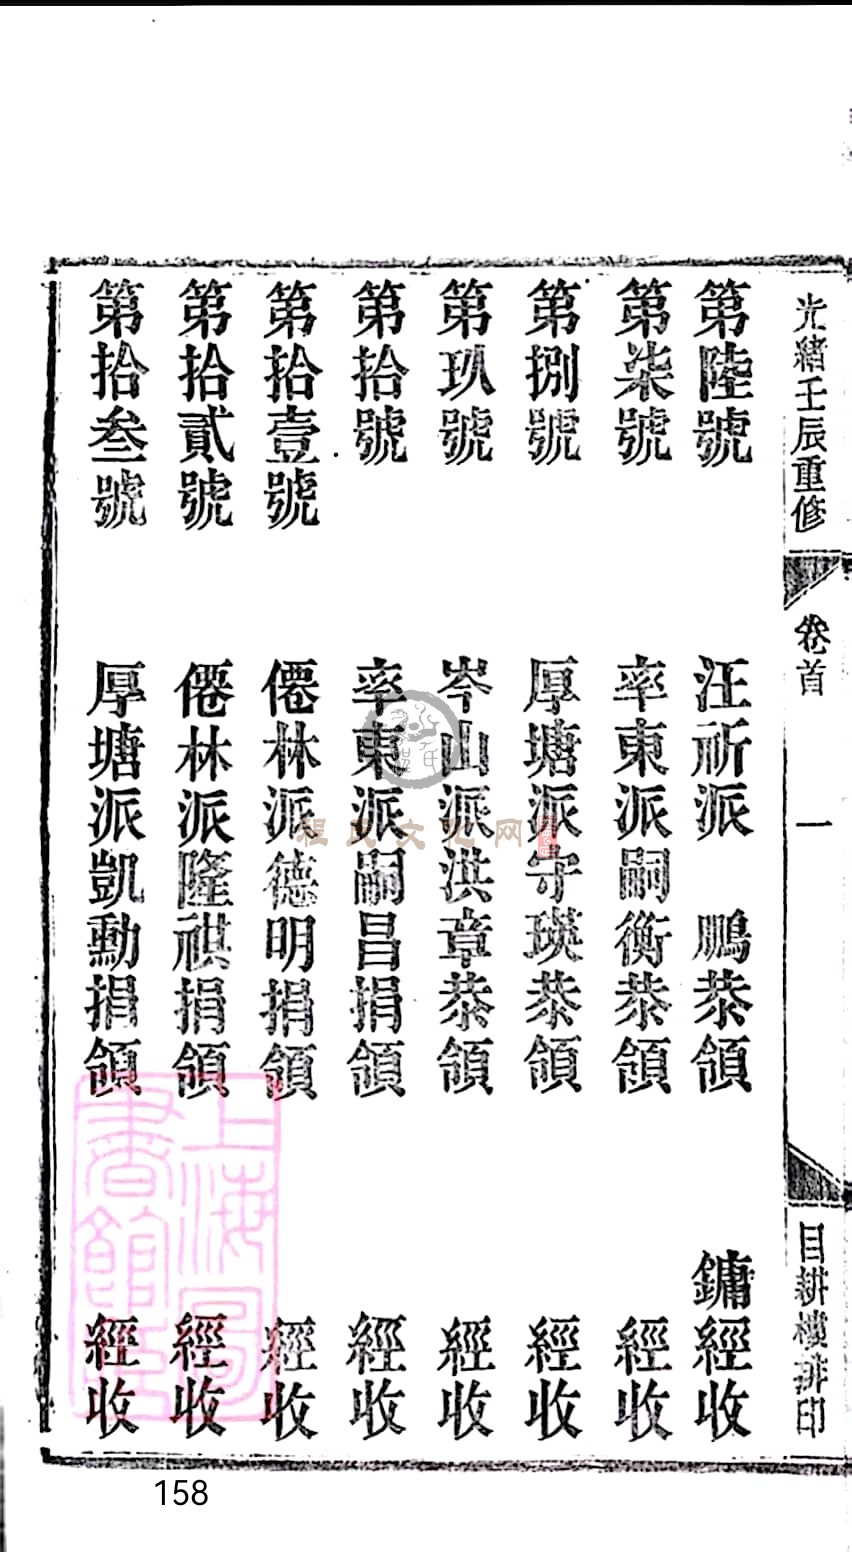 光緒壬辰重修
卷首
一
目耕樓排印
第陸號 汪祈派 鵬恭領 鏞經收
第柒號 率東派嗣衡恭領 經收
第捌號 厚塘派守瑛恭領 經收
第玖號 岑山派洪章恭領 經收
第拾號 率東派嗣昌捐領 經收
第拾壹號 僊林派德明捐領 經收
第拾貳號 僊林派隆祺捐領 經收
第拾叁號 厚塘派凱勳捐領 經收
程氏文化网
上海圖書館藏
158